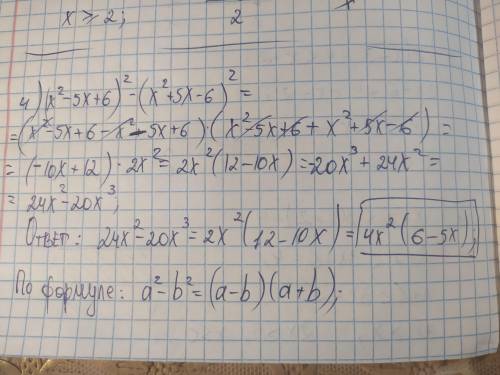 x ≥ 2; 2 x
4) (x²-5x+6)² - (x²+5x-6)² =
= (x²-5x+6-x²-5x+6)·(x²-5x+6+x²+5x-6) =
= (-10x+12)·2x² = 2x²(12-10x) = -20x³+24x² =
= 24x²-20x³;
Ответ: 24x²-20x³ = 2x²(12-10x) = 4x²(6-5x);
По формуле: a²-b² = (a-b)(a+b);